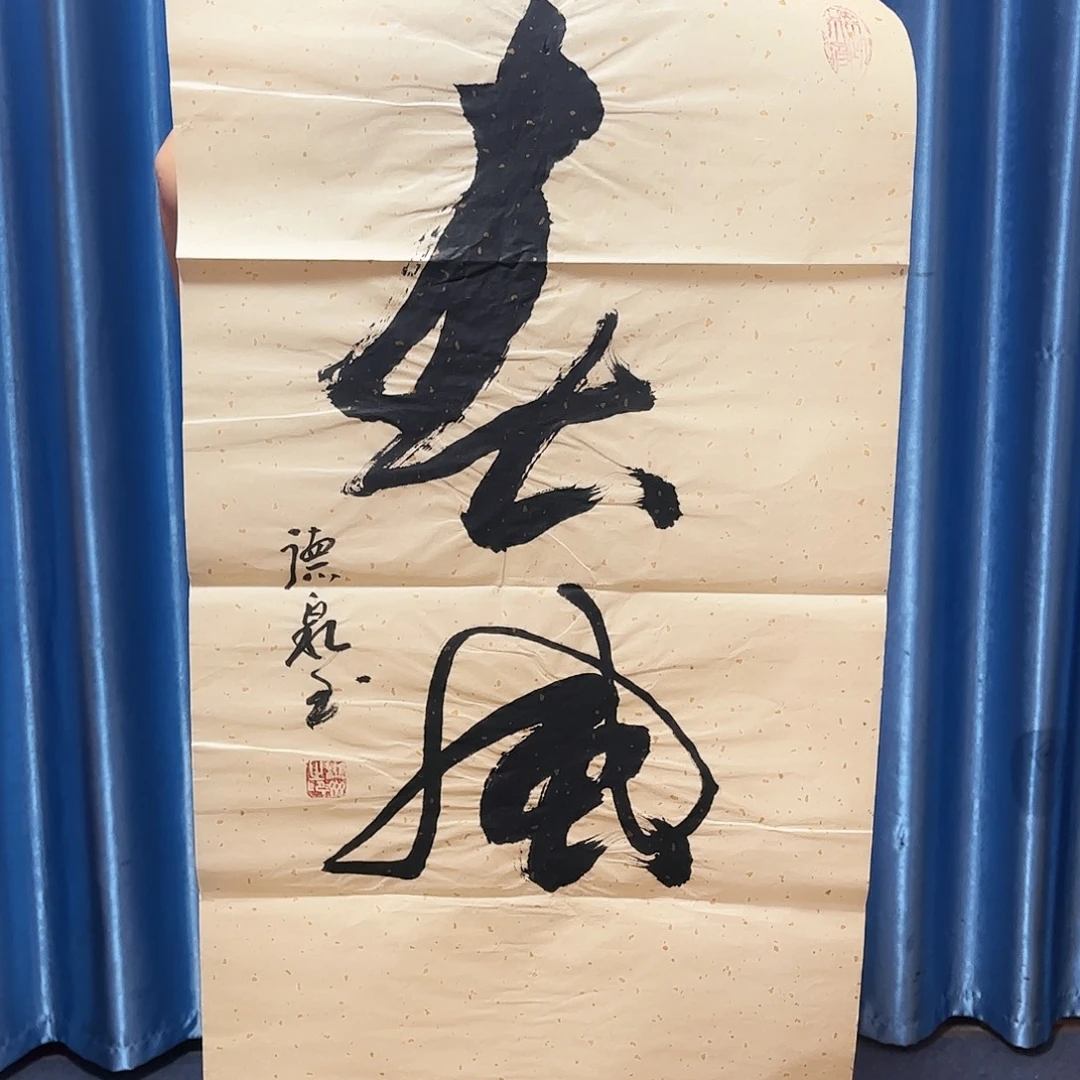 春風
德泉书